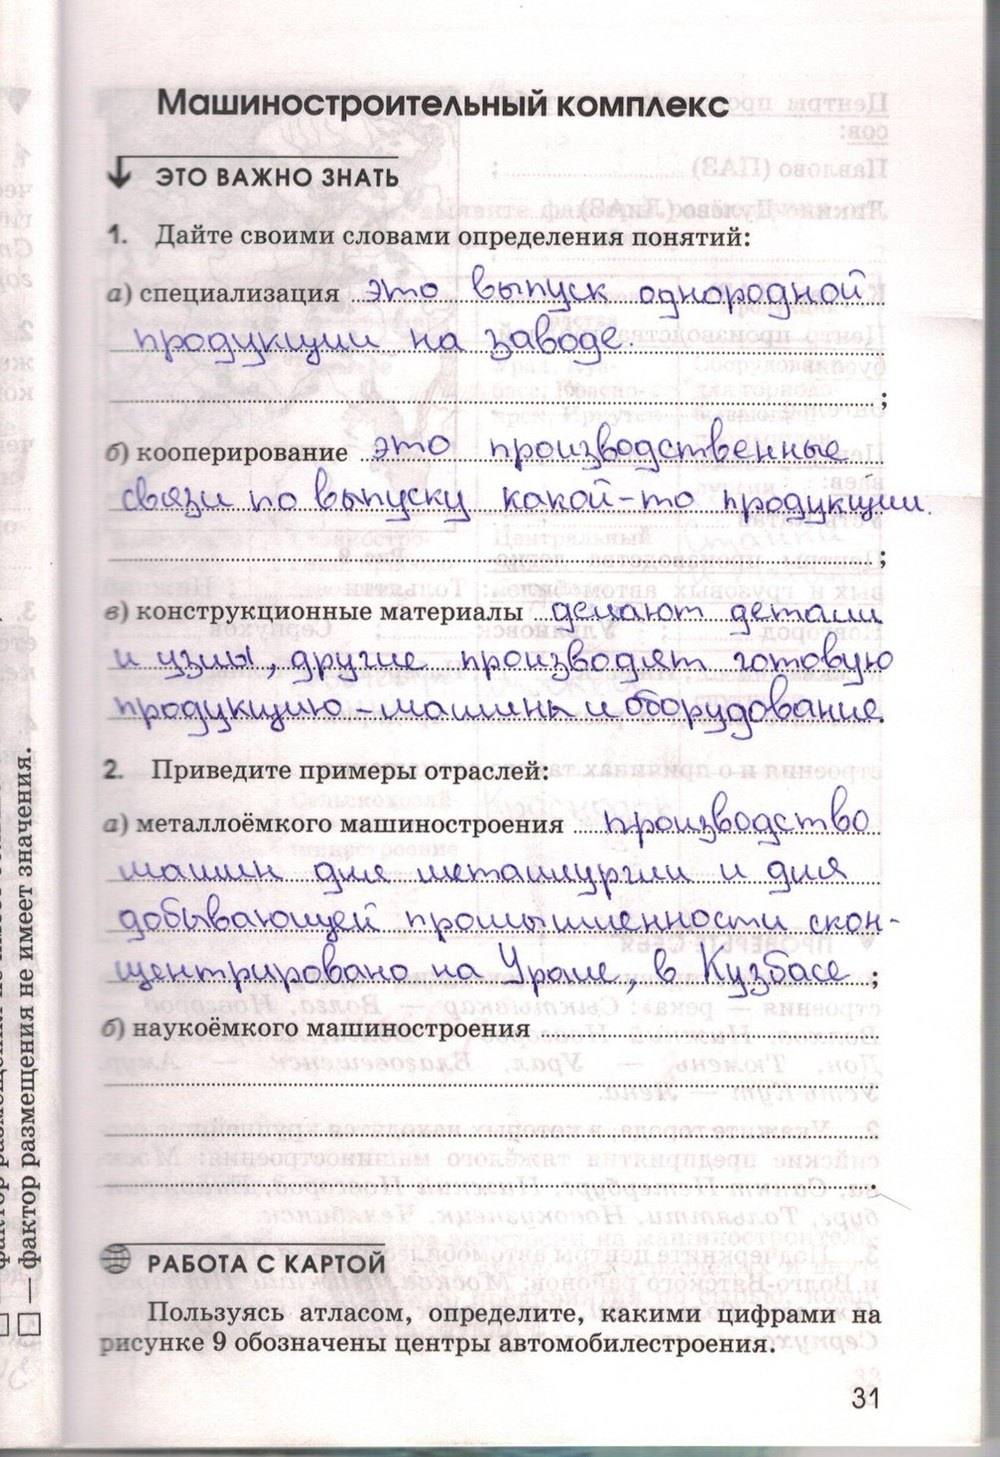 Машиностроительный комплекс
ЭТО ВАЖНО ЗНАТЬ
1. Дайте своими словами определения понятий:
а) специализация это выпуск однородной
продукции на заводе.
;
б) кооперирование это производственные
связи по выпуску какой-то продукции.
;
в) конструкционные материалы делают детали
и узлы, другие производят готовую
продукцию - машины и оборудование.
2. Приведите примеры отраслей:
а) металлоёмкого машиностроения производство
машин для металлургии и для
добывающей промышленности скон-
центрировано на Урале, в Кузбассе ;
б) наукоёмкого машиностроения
.
РАБОТА С КАРТОЙ
Пользуясь атласом, определите, какими цифрами на
рисунке 9 обозначены центры автомобилестроения.
31
— фактор размещения не имеет значения.